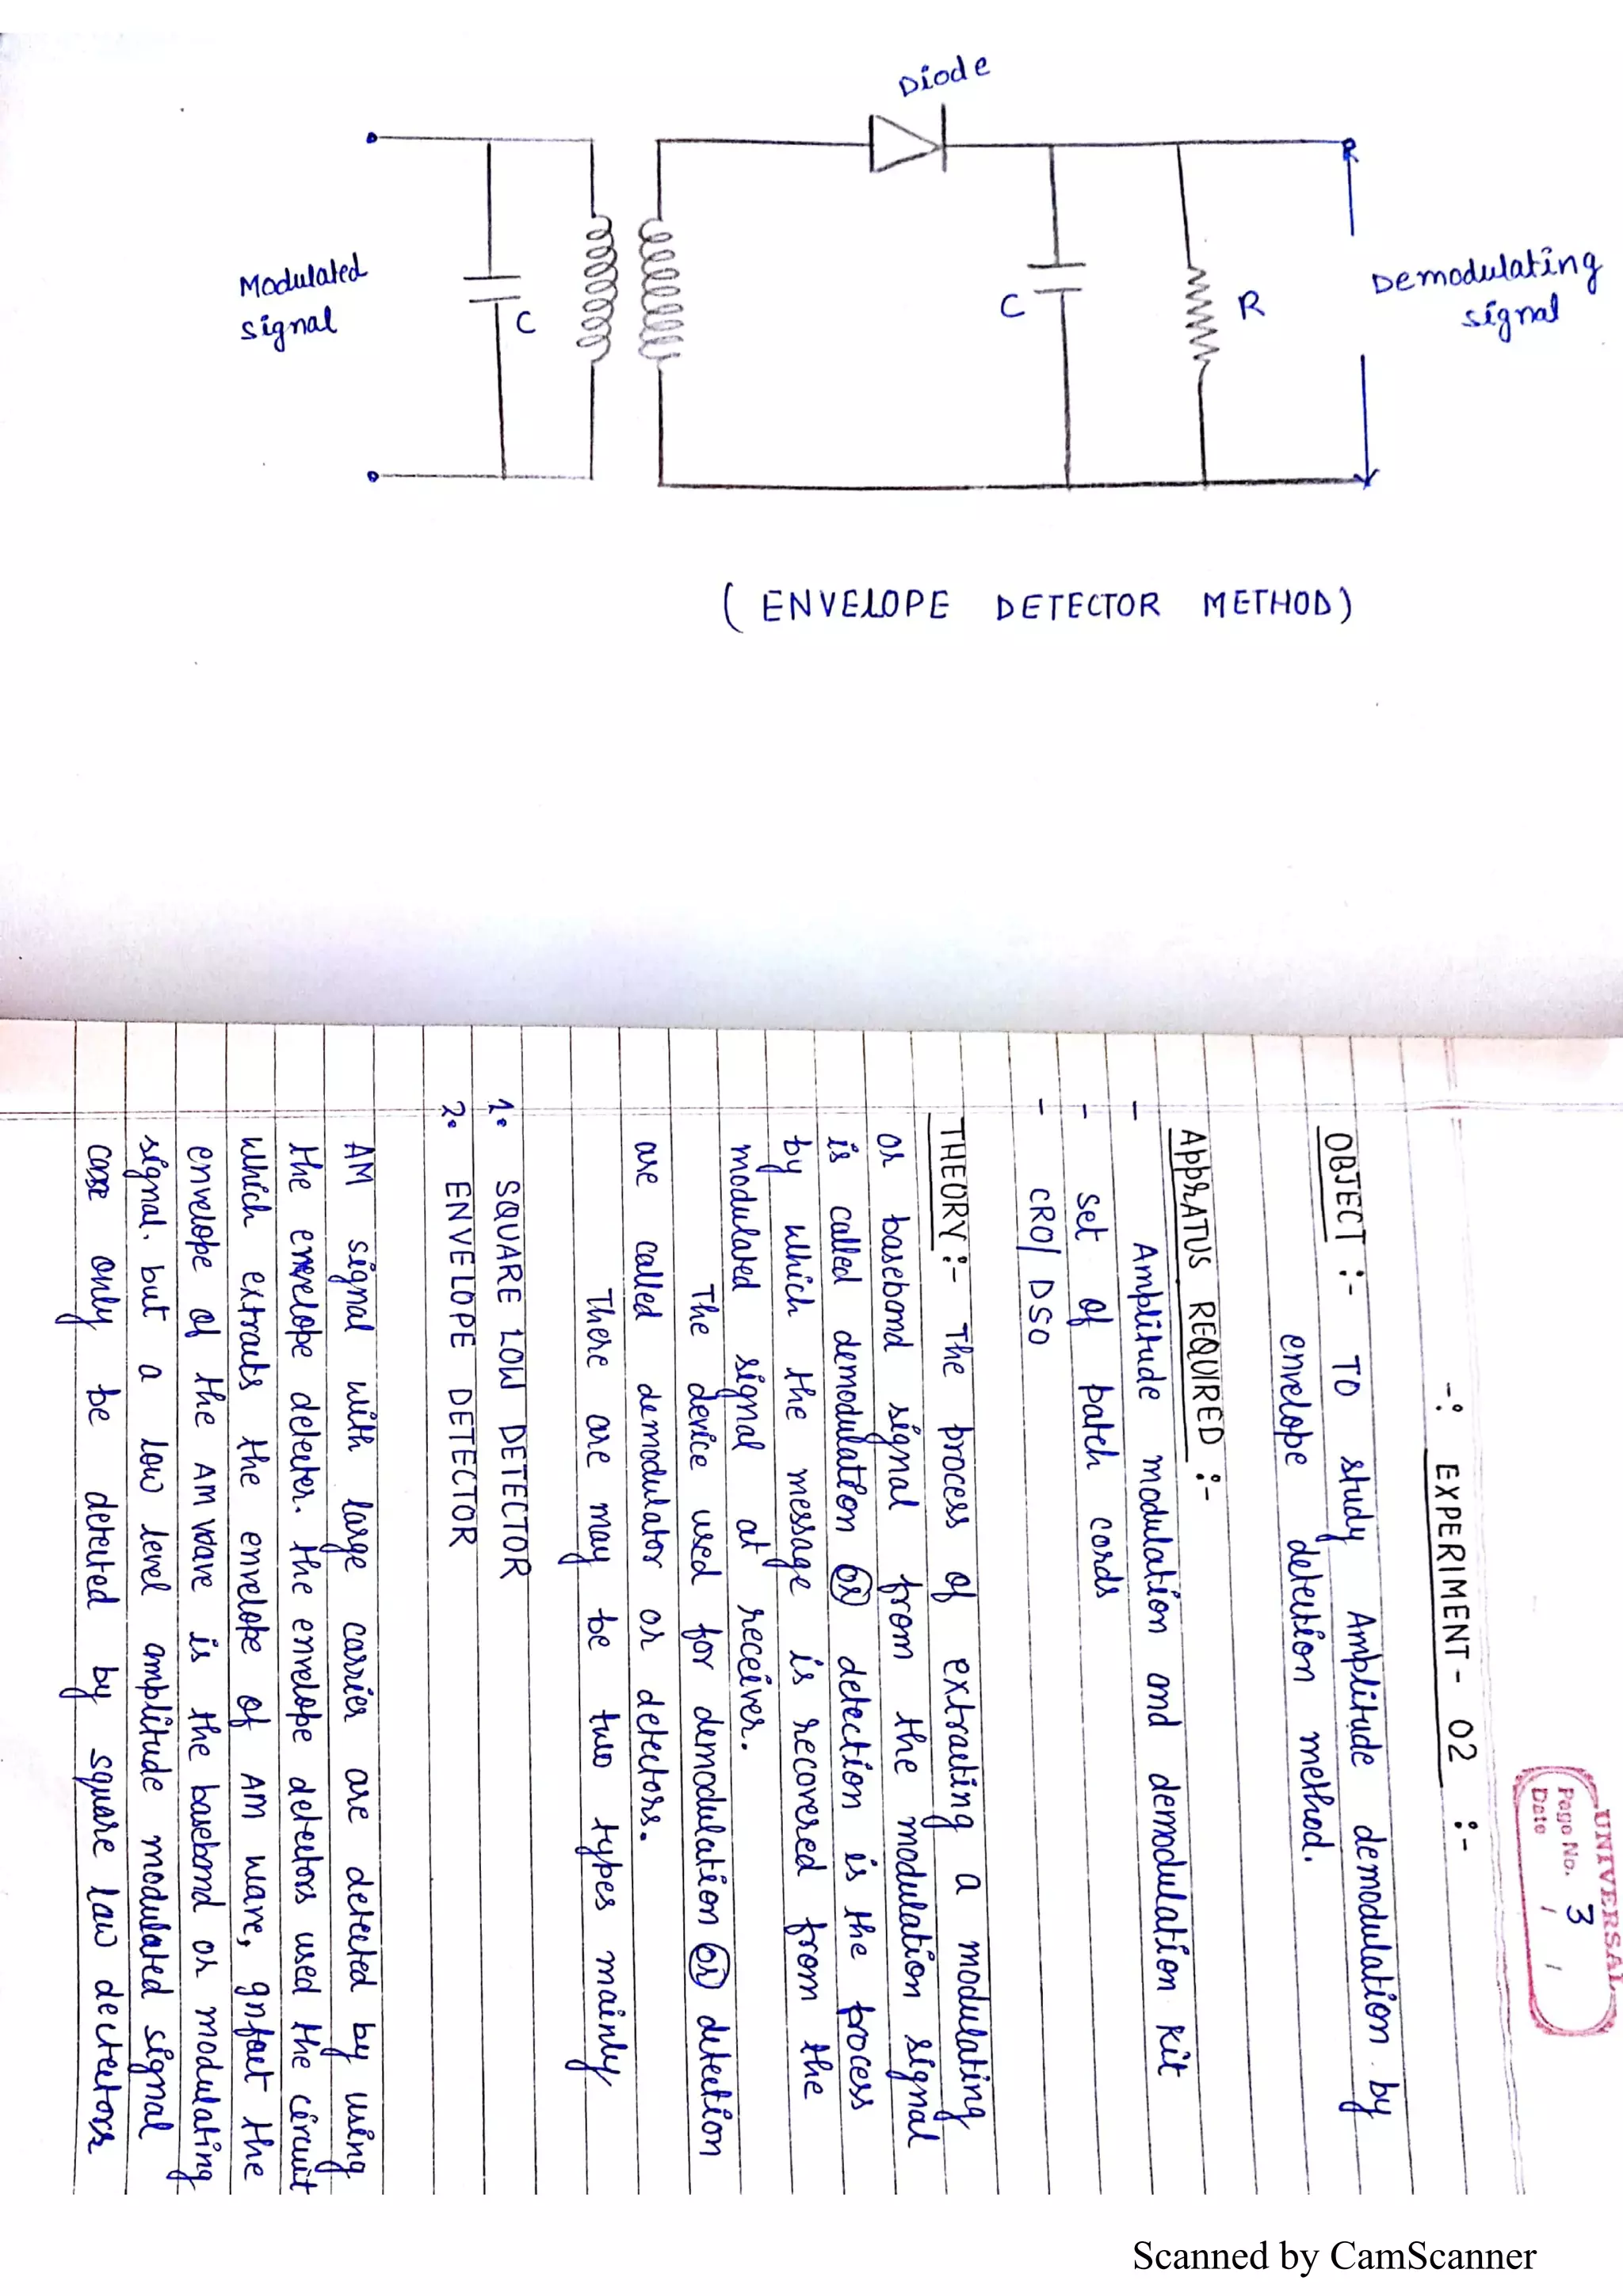 Diode
Modulated
signal
C
C
R
Demodulating
signal
( ENVELOPE DETECTOR METHOD )
UNIVERSAL
Page No. 3
Date / /
-: EXPERIMENT - 02 :-
OBJECT :- TO study Amplitude demodulation by
envelope detection method.
AppRATUS REQUIRED :-
- Amplitude modulation and demodulation Kit
- set of patch cords
- CRO/ DSO
THEORY :- The process of extracting a modulating
or baseband signal from the modulation signal
is called demodulation or detection is the process
by which the message is recovered from the
modulated signal at receiver.
The device used for demodulation or detection
are called demodulator or detectors.
There are may be two types mainly
1. SQUARE LOW DETECTOR
2. ENVELOPE DETECTOR
AM signal with large carrier are detected by using
the envelope detecter. the envelope detectors used the circuit
which extracts the envelope of AM wave, gnfact the
envelope of the AM wave is the baseband or modulating
signal. but a low level amplitude modulated signal
case only be detected by square law dectectors
Scanned by CamScanner